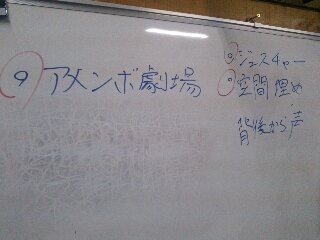 ⑨ アメンボ劇場
① ジェスチャー
② 空間埋め
背後から声